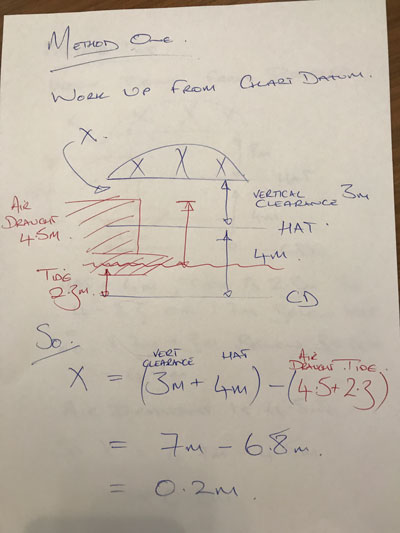 METHOD ONE.
WORK UP FROM CHART DATUM.
X.
X X X
AIR
DRAUGHT
4.5M.
VERTICAL
CLEARANCE 3m
HAT.
4m.
TIDE
2.3m.
CD
So.
VERT
CLEARANCE HAT AIR
DRAUGHT. TIDE.
X = (3m + 4m) - (4.5+2.3)
= 7m - 6.8m.
= 0.2m.